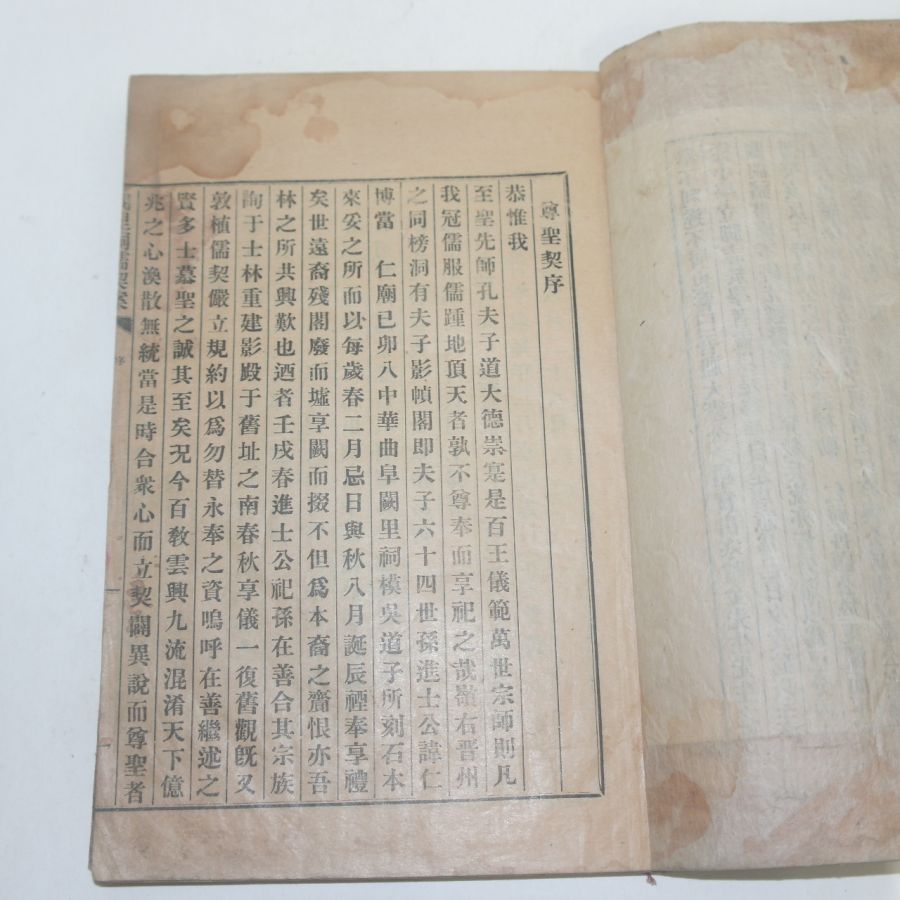 尊聖契序
恭惟我
至聖先師孔夫子道大德崇寔是百王儀範萬世宗師則凡
我冠儒服儒踵地頂天者孰不尊奉而享祀之哉嶺右晋州
之同榜洞有夫子影幀閣即夫子六十四世孫進士公諱仁
博當 仁廟己卯八中華曲阜闕里祠模吳道子所刻石本
來妥之所而以每歲春二月忌日與秋八月誕辰禋奉享禮
矣世遠裔殘閣廢而墟享闕而掇不但爲本裔之齎恨亦吾
林之所共興歎也迺者壬戌春進士公祀孫在善合其宗族
詢于士林重建影殿于舊址之南春秋享儀一復舊觀旣又
敦植儒契嚴立規約以爲勿替永奉之資嗚呼在善繼述之
賢多士慕聖之誠其至矣况今百敎雲興九流混淆天下億
兆之心渙散無統當是時合衆心而立契闢異說而尊聖者
里祠儒契案
序